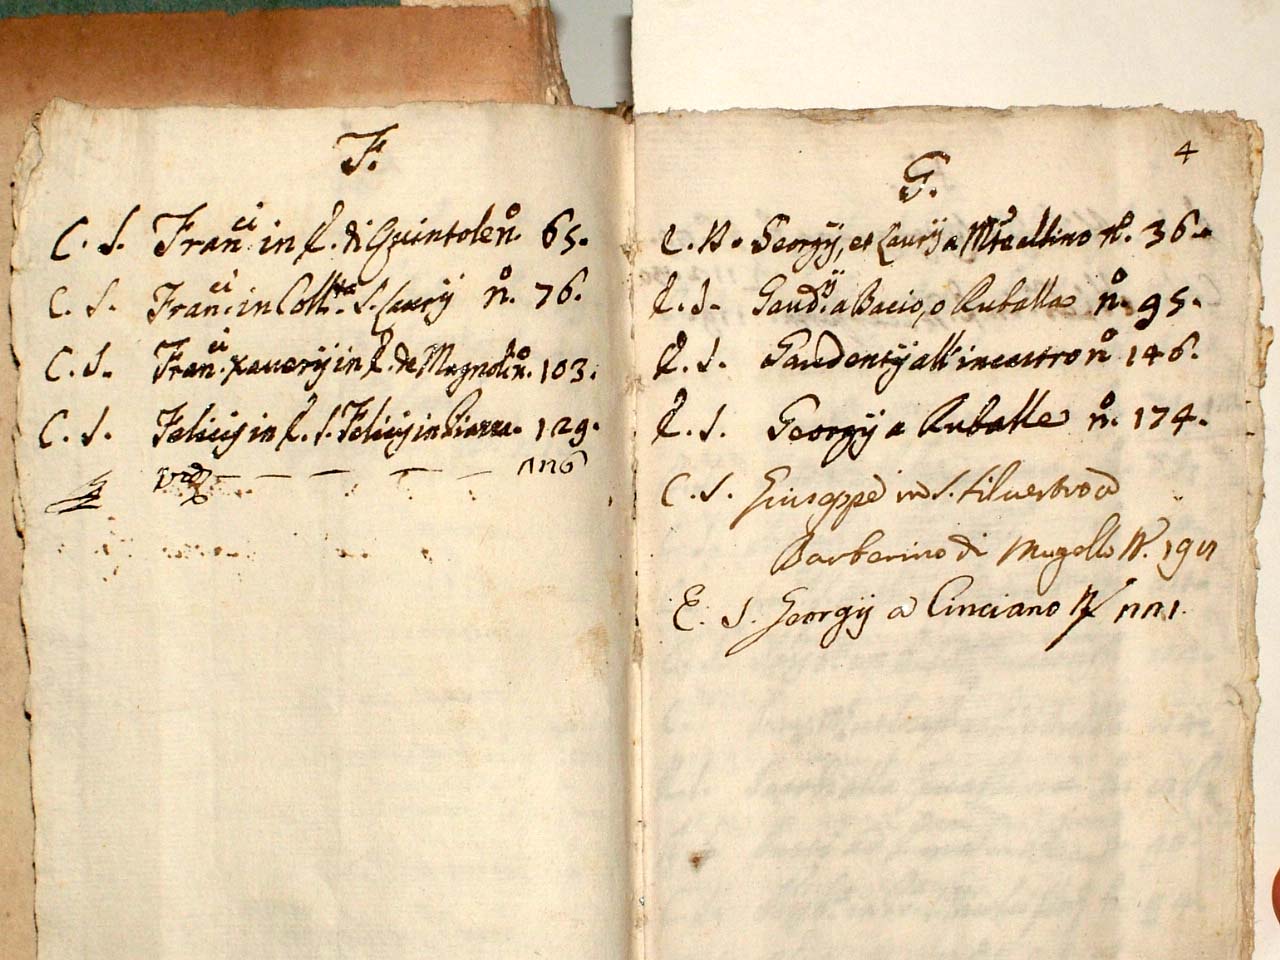 F.
C. S. Fran.ci in E. di Quintole n.o 65.
C. S. Fran.ci in Coll.ta S. Laurij n.o 76.
C. S. Fran.ci Xaverij in E. de Mugnol n.o 103.
C. S. Felicis in E. S. Felicis in Piazza. 129.
4
G.
E. Georgij, et Laurij a Mte albino n.o 36.
E. S. Gaud.ij a Bacio, o Ruballa n.o 95.
E. S. Gaudentij all'incastro n.o 146.
E. S. Georgij a Ruballa n.o 174.
C. S. Giuseppe in S. Silvestro a
Barberino di Mugello N.
E. S. Georgij a Cinciano N.